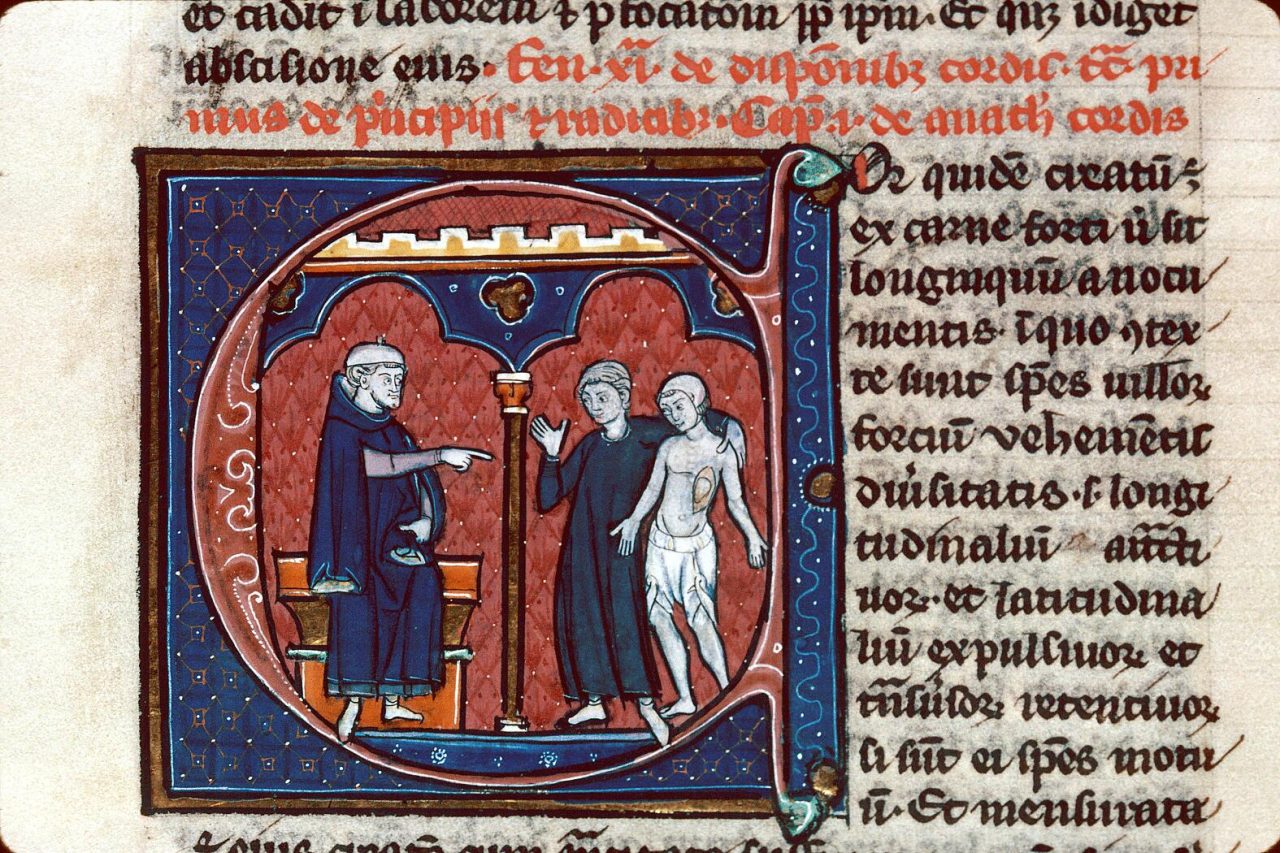 et cadit ī laborem ⁊ ꝓuocatōm ꝓp̄ ip̄m. Et qn̄ȝ īdiget
abscisione eius. Fen. xı̄. de dispōnibȝ cordis. tc̄. pri
mus de pͥncipiis ⁊ radicibȝ. Cap̄. i. de anathͦ cordis
Cor quidē creatū ē
ex carne forti ut sit
longinquū a nocu
mentis. ī quo ꝯtex
te sunt sp̄es uilloꝝ
fortiū vehemētis
diūsitatis. s. longi
tudinaliū att͛cti
uoꝝ. et latitudina
liū expulsiuoꝝ et
tn̄sūsoꝝ retentiuoꝝ
si sūt ei sp̄es motu
ū. Et mensurata